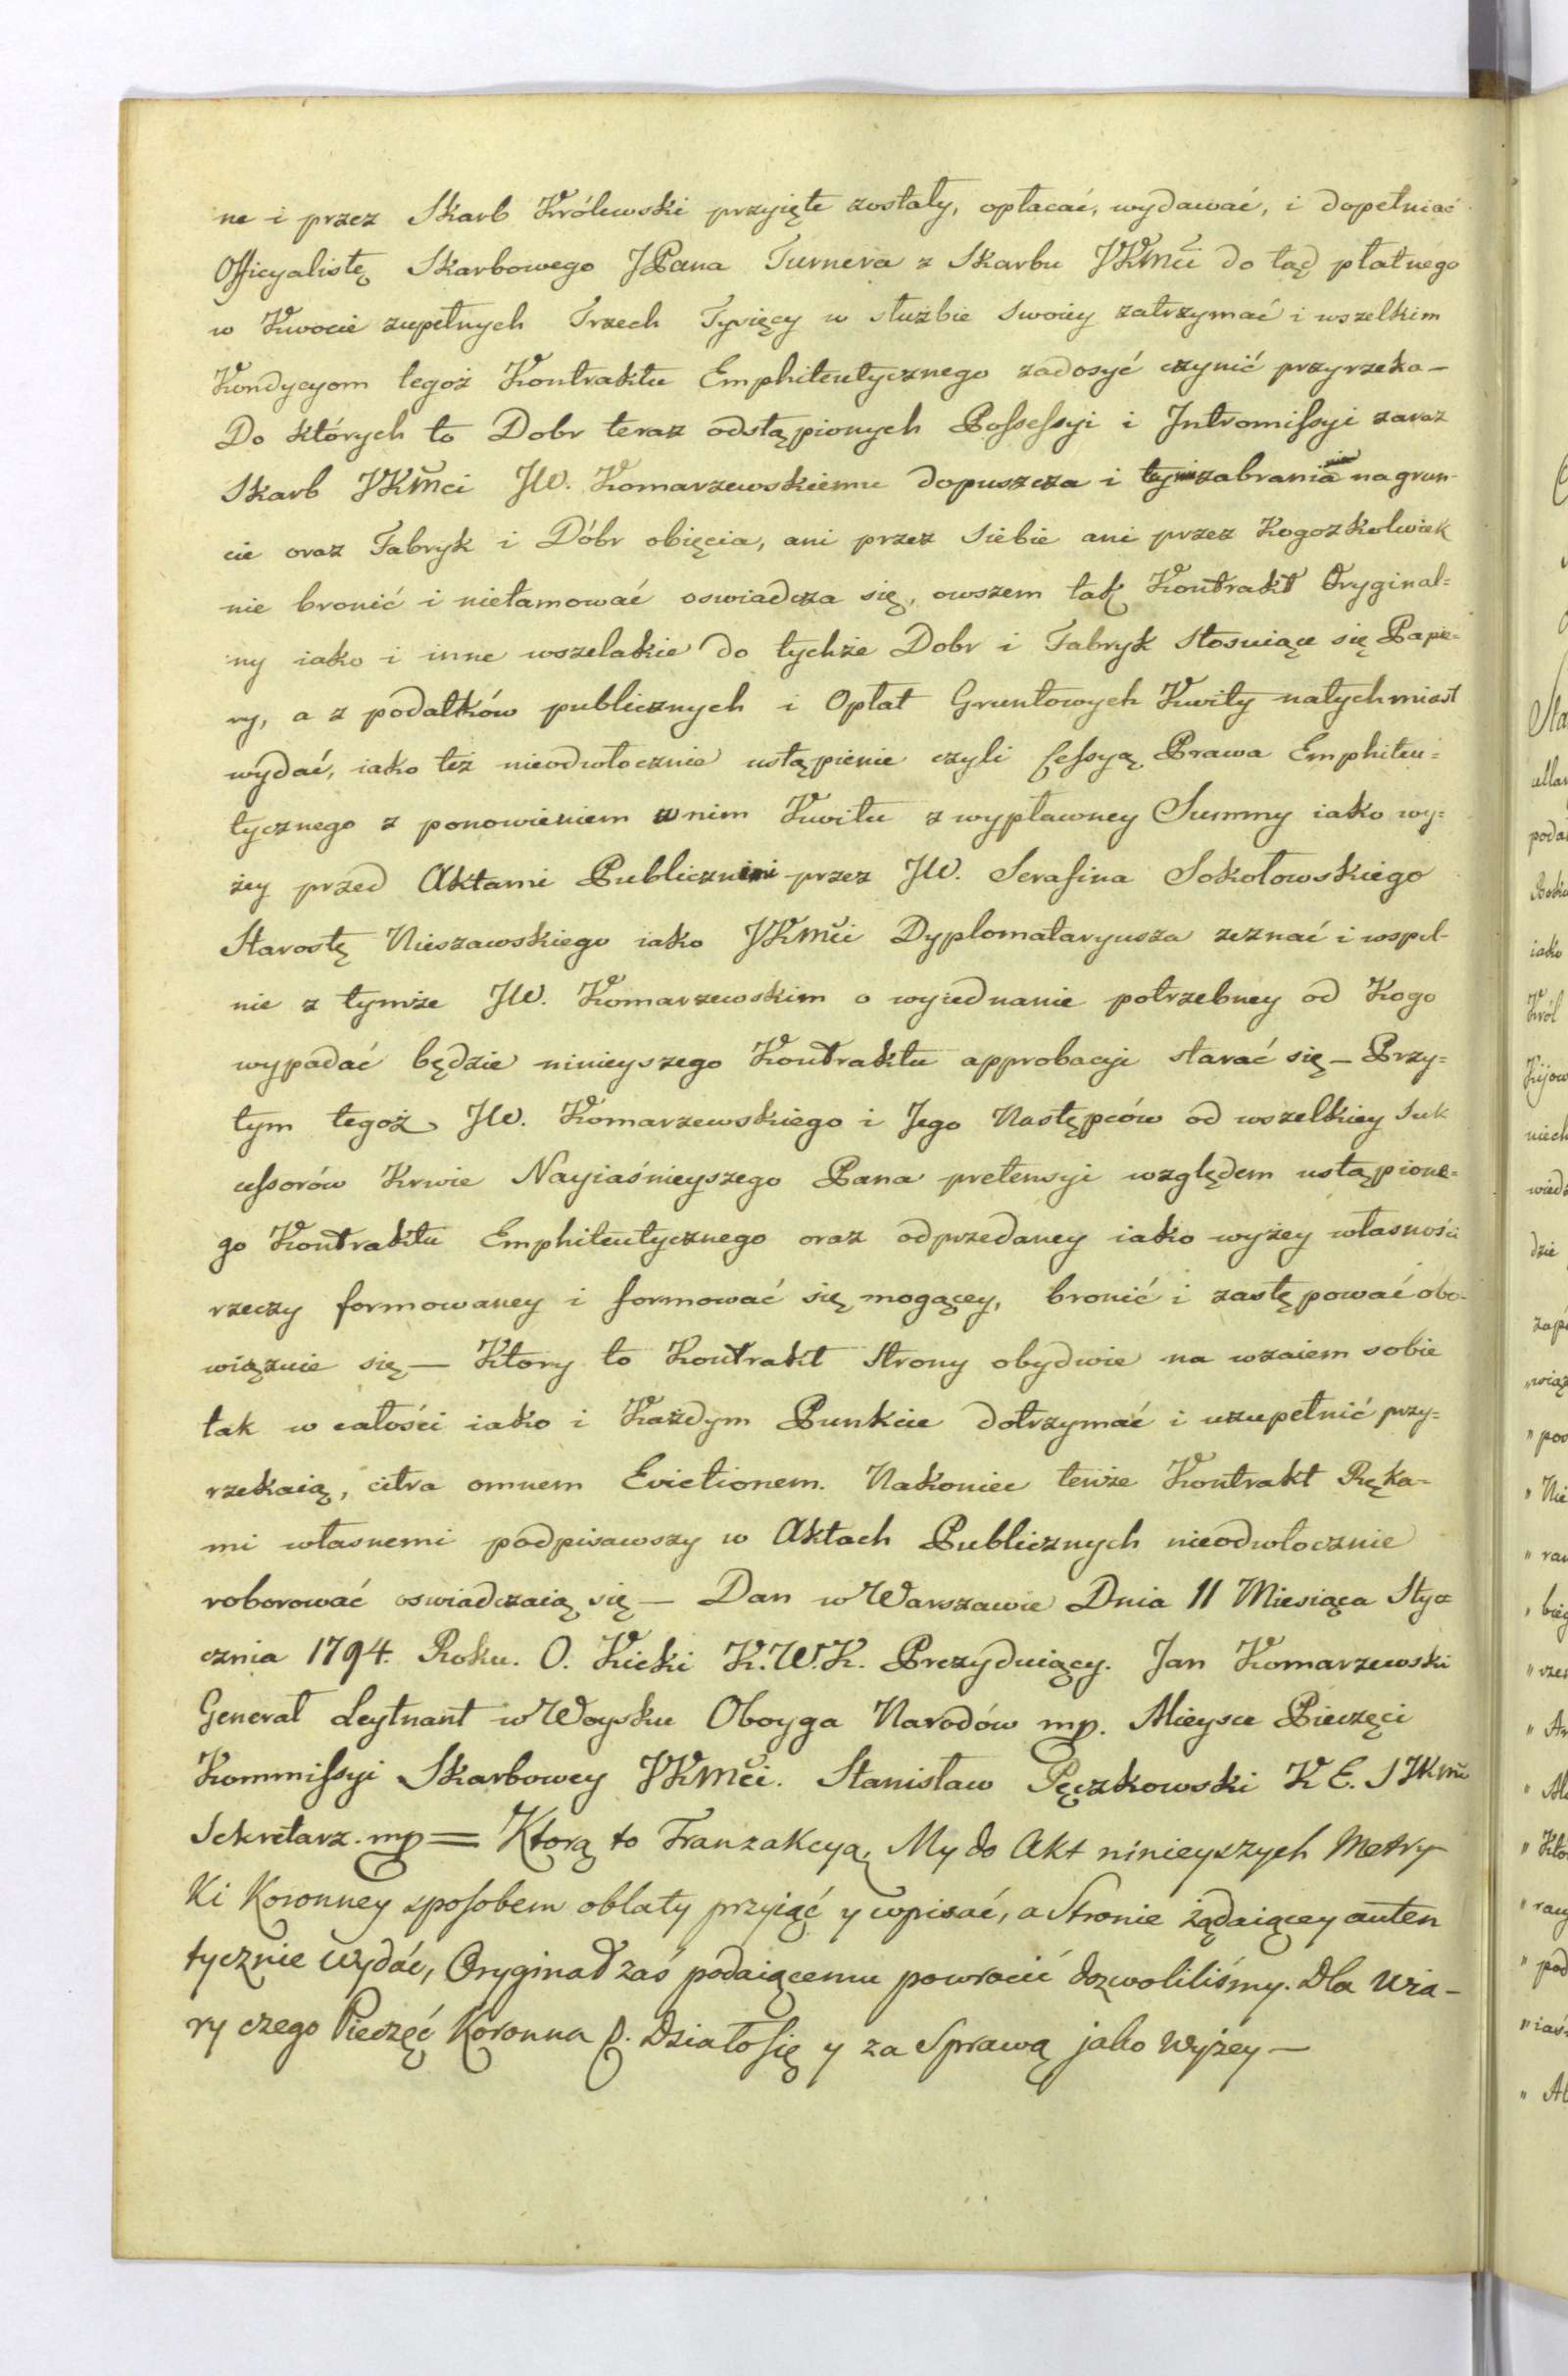 ne i przez Skarb Królewski przyięte zostały, opłacać, wydawać, i dopełniać
Officyalistę Skarbowego JPana Turnera z Skarbu JKMci do tąd płatnego
w Kwocie zupełnych Trzech Tysięcy w służbie swoiey zatrzymać i wszelkim
Kondycyom tegoż Kontraktu Emphiteutycznego zadosyć czynić przyrzeka —
Do których to Dobr teraz odstąpionych Possessyi i Intromissyi zaraz
Skarb JKMci JW. Komarzewskiemu dopuszcza i zabrania na grun-
cie oraz Fabryk i Dóbr obięcia, ani przez siebie ani przez Kogozkolwiek
nie bronić i nietamować oswiadcza się, owszem tak Kontrakt Oryginal=
ny iako i inne wszelakie do tychże Dobr i Fabryk stosuiące się Papie=
ry, a z podatków publicznych i Opłat Gruntowych Kwity natychmiast
wydać, iako też nieodwłocznie ustąpienie czyli Cessyą Prawa Emphiteu=
tycznego z ponowieniem w nim Kwitu z wypławney Summy iako wy=
żey przed Aktami Publicznemi przez JW. Serafina Sokołowskiego
Starostę Nieszawskiego iako JKMci Dyplomataryusza zeznać i wspol-
nie z tymże JW. Komarzewskim o wyiednanie potrzebney od Kogo
wypadać będzie ninieyszego Kontraktu approbacyi starać się — Przy=
tym tegoż JW. Komarzewskiego i Jego Następców od wszelkiey Suk
cessorów Krwie Nayiaśnieyszego Pana pretensyi względem ustąpione=
go Kontraktu Emphiteutycznego oraz odprzedaney iako wyżey własności
rzeczy formowaney i formować się mogącey, bronić i zastępować obo-
wiązuie się — Ktory to Kontrakt Strony obydwie na wzaiem sobie
tak w całości iako i Każdym Punkcie dotrzymać i uzupełnić przy=
rzekaią, citra omnem Evictionem. Nakoniec tenże Kontrakt Ręka-
mi własnemi podpisawszy w Aktach Publicznych nieodwłocznie
roborować oswiadczaią się — Dan w Warszawie Dnia 11 Miesiąca Sty=
cznia 1794. Roku. O. Kicki K.W.K. Prezyduiący. Jan Komarzewski
Generał Leytnant w Woysku Oboyga Narodów mp. Mieysce Pieczęci
Kommissyi Skarbowey JKMci. Stanisław Pęczkowski K E. S JKMci
Sekretarz. mp = Ktorą to Tranzakcyą, My do Akt ninieyszych Metry
Ki Koronney sposobem oblaty przyiąć y wpisać, a Stronie żądaiącey auten
tycznie wydać, Oryginał zaś podaiącemu powrocić dozwoliliśmy. Dla wia-
ry czego Pieczęć Koronna p. Działo się y za Sprawą jako wyżey —